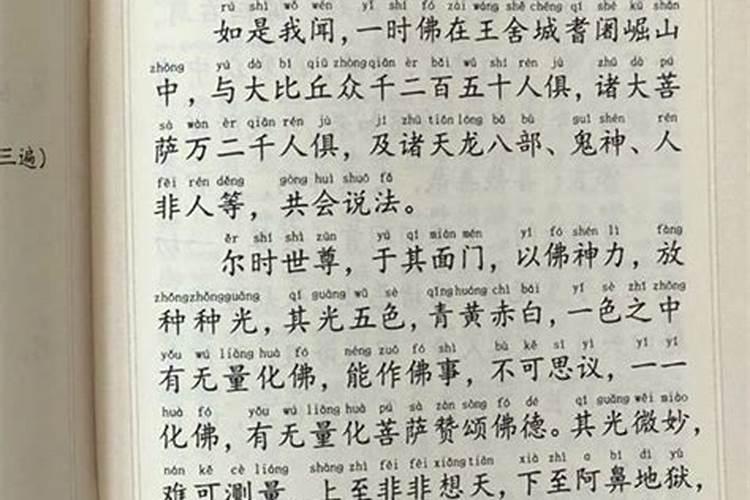 三遍）
rú shì wǒ wén yī shí fó zài wáng shě chéng qí shé kū shān
如是我闻，一时佛在王舍城耆阇崛山
zhōng yǔ dà bǐ qiū zhòng qiān èr bǎi wǔ shí rén jù zhū dà pú
中，与大比丘众千二百五十人俱，诸大菩
sà wàn èr qiān rén jù jí zhū tiān lóng bā bù guǐ shén rén
萨万二千人俱，及诸天龙八部、鬼神、人
fēi rén děng gòng huì shuō fǎ
非人等，共会说法。
ěr shí shì zūn yú qí miàn mén yǐ fó shén lì fàng
尔时世尊，于其面门，以佛神力，放
zhǒng zhǒng guāng qí guāng wǔ sè qīng huáng chì bái yī sè zhī zhōng
种种光，其光五色，青黄赤白，一色之中
yǒu wú liàng huà fó néng zuò fó shì bù kě sī yì yī yī
有无量化佛，能作佛事，不可思议，一一
huà fó yǒu wú liàng huà pú sà zàn sòng fó dé qí guāng wēi miào
化佛，有无量化菩萨赞颂佛德。其光微妙，
nán kě cè liáng shàng zhì fēi fēi xiǎng tiān xià zhì ā bí dì yù
难可测量，上至非非想天，下至阿鼻地狱，